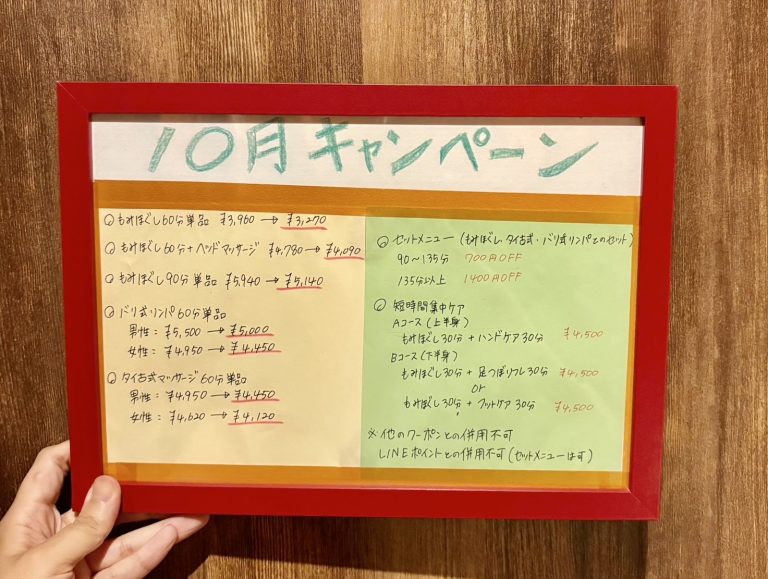 10月キャンペーン
○ もみほぐし60分単品 ¥3,960 → ¥3,270
○ もみほぐし60分+ヘッドマッサージ ¥4,780 → ¥4,090
○ もみほぐし90分単品 ¥5,940 → ¥5,140
○ バリ式リンパ60分単品
男性: ¥5,500 → ¥5,000
女性: ¥4,950 → ¥4,450
○ タイ古式マッサージ60分単品
男性: ¥4,950 → ¥4,450
女性: ¥4,620 → ¥4,120
○ セットメニュー (もみほぐし・タイ古式・バリ式リンパとのセット)
90〜135分 700円OFF
135分以上 1400円OFF
○ 短時間集中ケア
Aコース(上半身)
もみほぐし30分+ハンドケア30分 ¥4,500
Bコース(下半身)
もみほぐし30分+足つぼリフレ30分 ¥4,500
or
もみほぐし30分+フットケア30分 ¥4,500
※他のクーポンとの併用不可
LINEポイントとの併用不可(セットメニューは可)